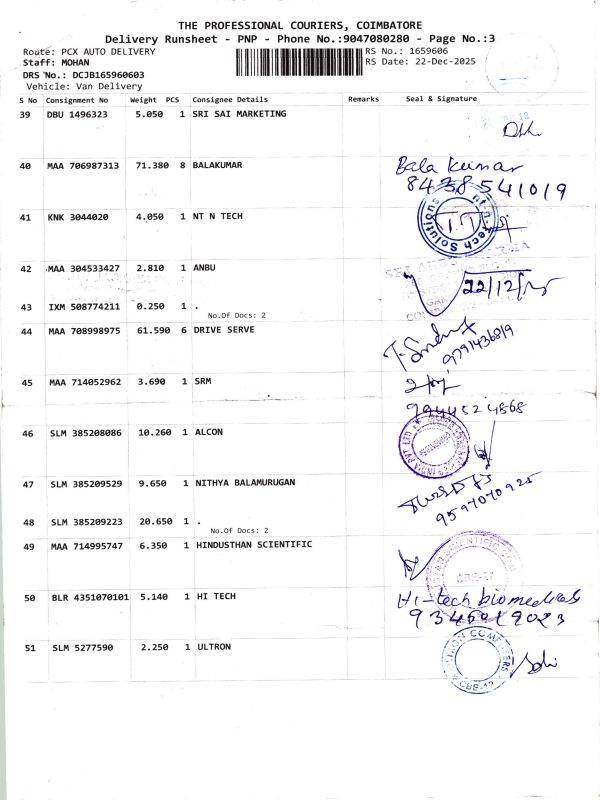 THE PROFESSIONAL COURIERS, COIMBATORE
Delivery Runsheet - PNP - Phone No.:9047080280 - Page No.:3
Route: PCX AUTO DELIVERY RS No.: 1659606
Staff: MOHAN RS Date: 22-Dec-2025
DRS No.: DCJB165960603
Vehicle: Van Delivery
S No Consignment No Weight PCS Consignee Details Remarks Seal & Signature
39 DBU 1496323 5.050 1 SRI SAI MARKETING
40 MAA 706987313 71.380 8 BALAKUMAR Bala Kumar
8438541019
41 KNK 3044020 4.050 1 NT N TECH
nt.n-Tech Solutions
42 MAA 304533427 2.810 1 ANBU
22/12/25
43 IXM 508774211 0.250 1 .
No.Of Docs: 2
44 MAA 708998975 61.590 6 DRIVE SERVE
9791436819
45 MAA 714052962 3.690 1 SRM
9444524868
46 SLM 385208086 10.260 1 ALCON
INDIA PVT LTD
47 SLM 385209529 9.650 1 NITHYA BALAMURUGAN
9597070925
48 SLM 385209223 20.650 1 .
No.Of Docs: 2
49 MAA 714995747 6.350 1 HINDUSTHAN SCIENTIFIC
50 BLR 4351070101 5.140 1 HI TECH Hi-tech biomedicals
9345019023
51 SLM 5277590 2.250 1 ULTRON
CBE-12